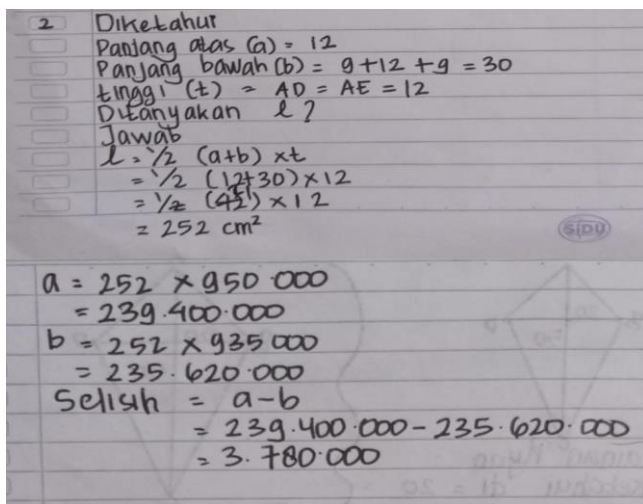 2 Diketahui
Panjang atas (a) = 12
Panjang bawah (b) = 9 + 12 + 9 = 30
tinggi (t) = AD = AE = 12
Ditanyakan l ?
Jawab
l = 1/2 (a+b) x t
= 1/2 (12+30) x 12
= 1/2 (42) x 12
= 252 cm²
SIDU
a = 252 x 950.000
= 239.400.000
b = 252 x 935 000
= 235.620.000
Selisih = a-b
= 239.400.000 - 235.620.000
= 3.780.000